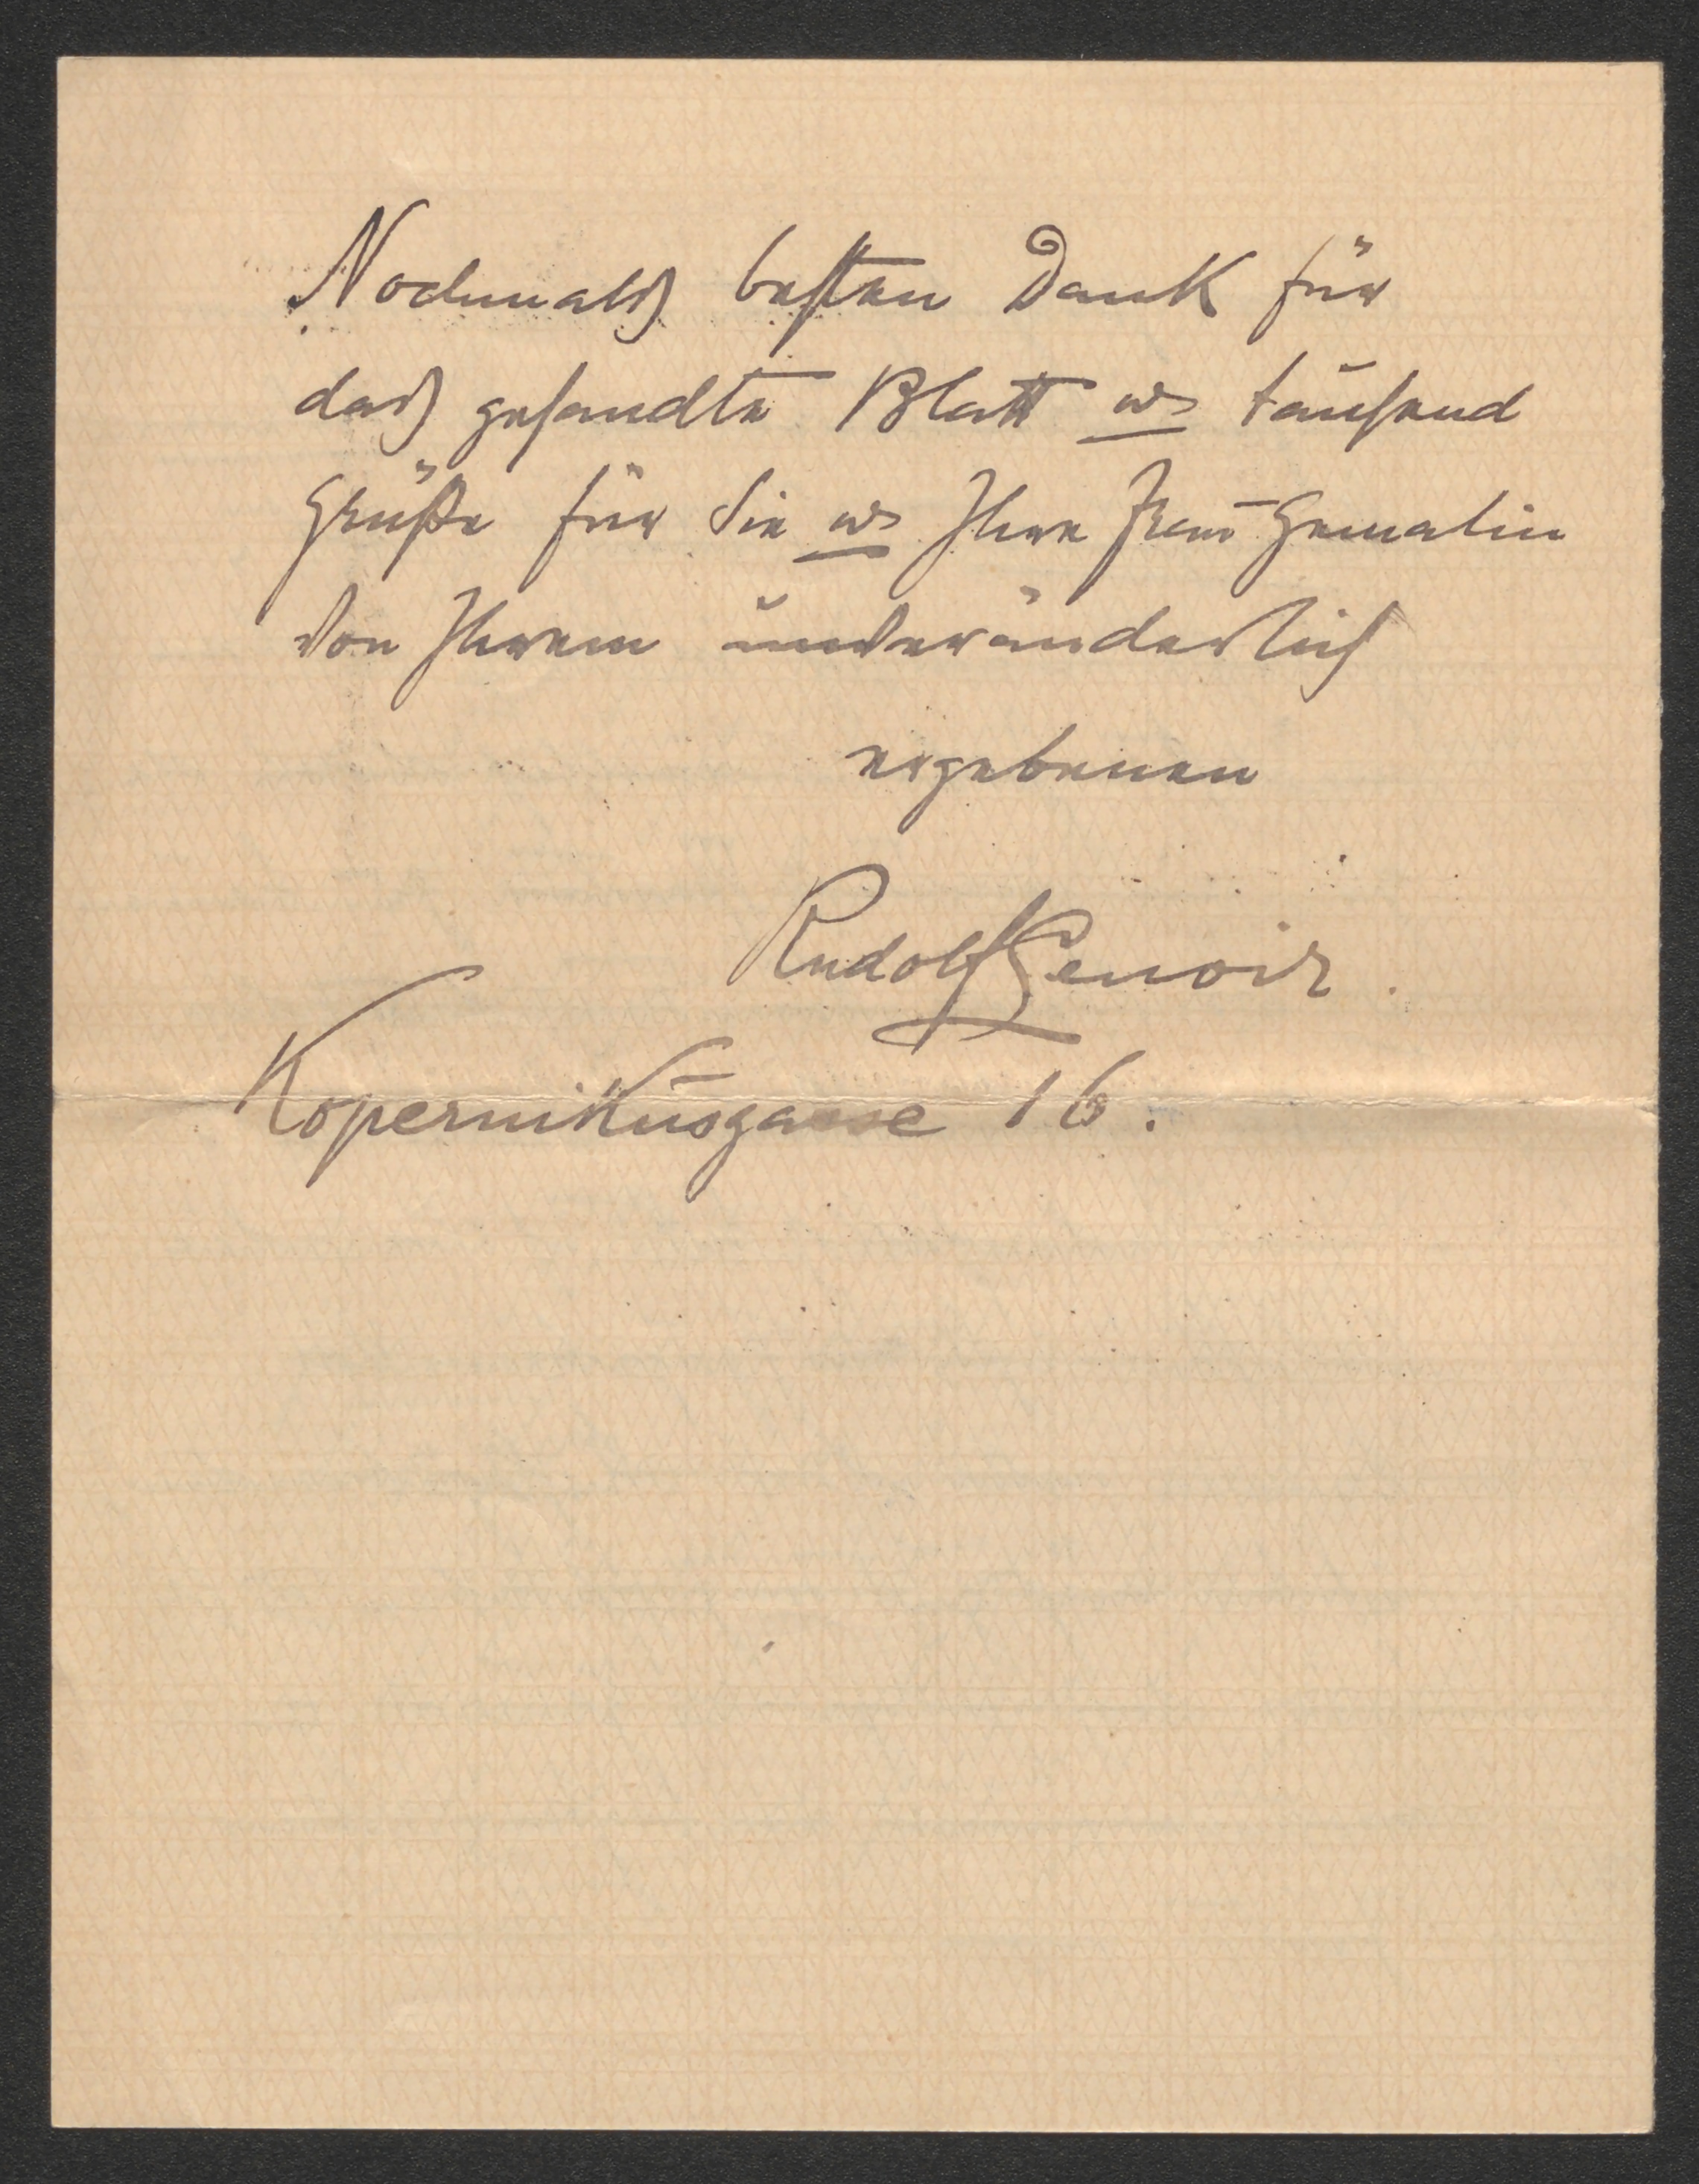 Nochmals besten Dank für
das gesandte Blatt u. tausend
Grüße für Sie u. Ihre Frau Gemalin
von Ihrem unveränderlich
ergebenen
Rudolf Lenoir.
Kopernikusgasse 16.